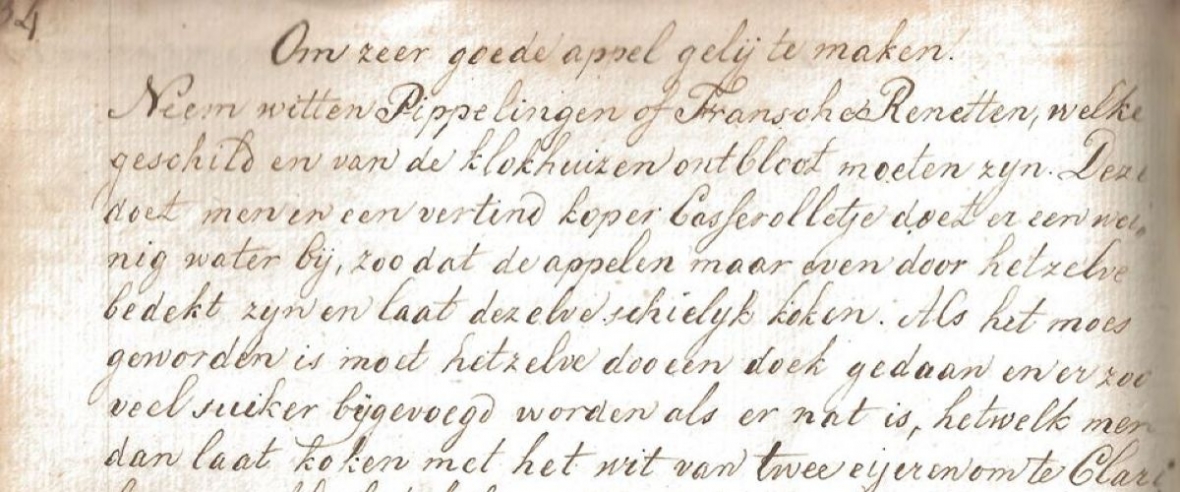 34
Om zeer goede appel gelij te maken.
Neem witten Pippelingen of Fransche Renetten, welke
geschild en van de klokhuizen ontbloot moeten zyn. Deze
doet men en een vertind koper Casserolletje doet er een wei„
nig water bij, zoo dat de appelen maar even door hetzelve
bedekt zyn en laat dezelve schielyk koken. Als het moes
geworden is moet hetzelve doo een doek gedaan en er zoo
veel suiker bygevoegd worden als er nat is, hetwelk men
dan laat koken met het wit van twee eijeren om te Clari